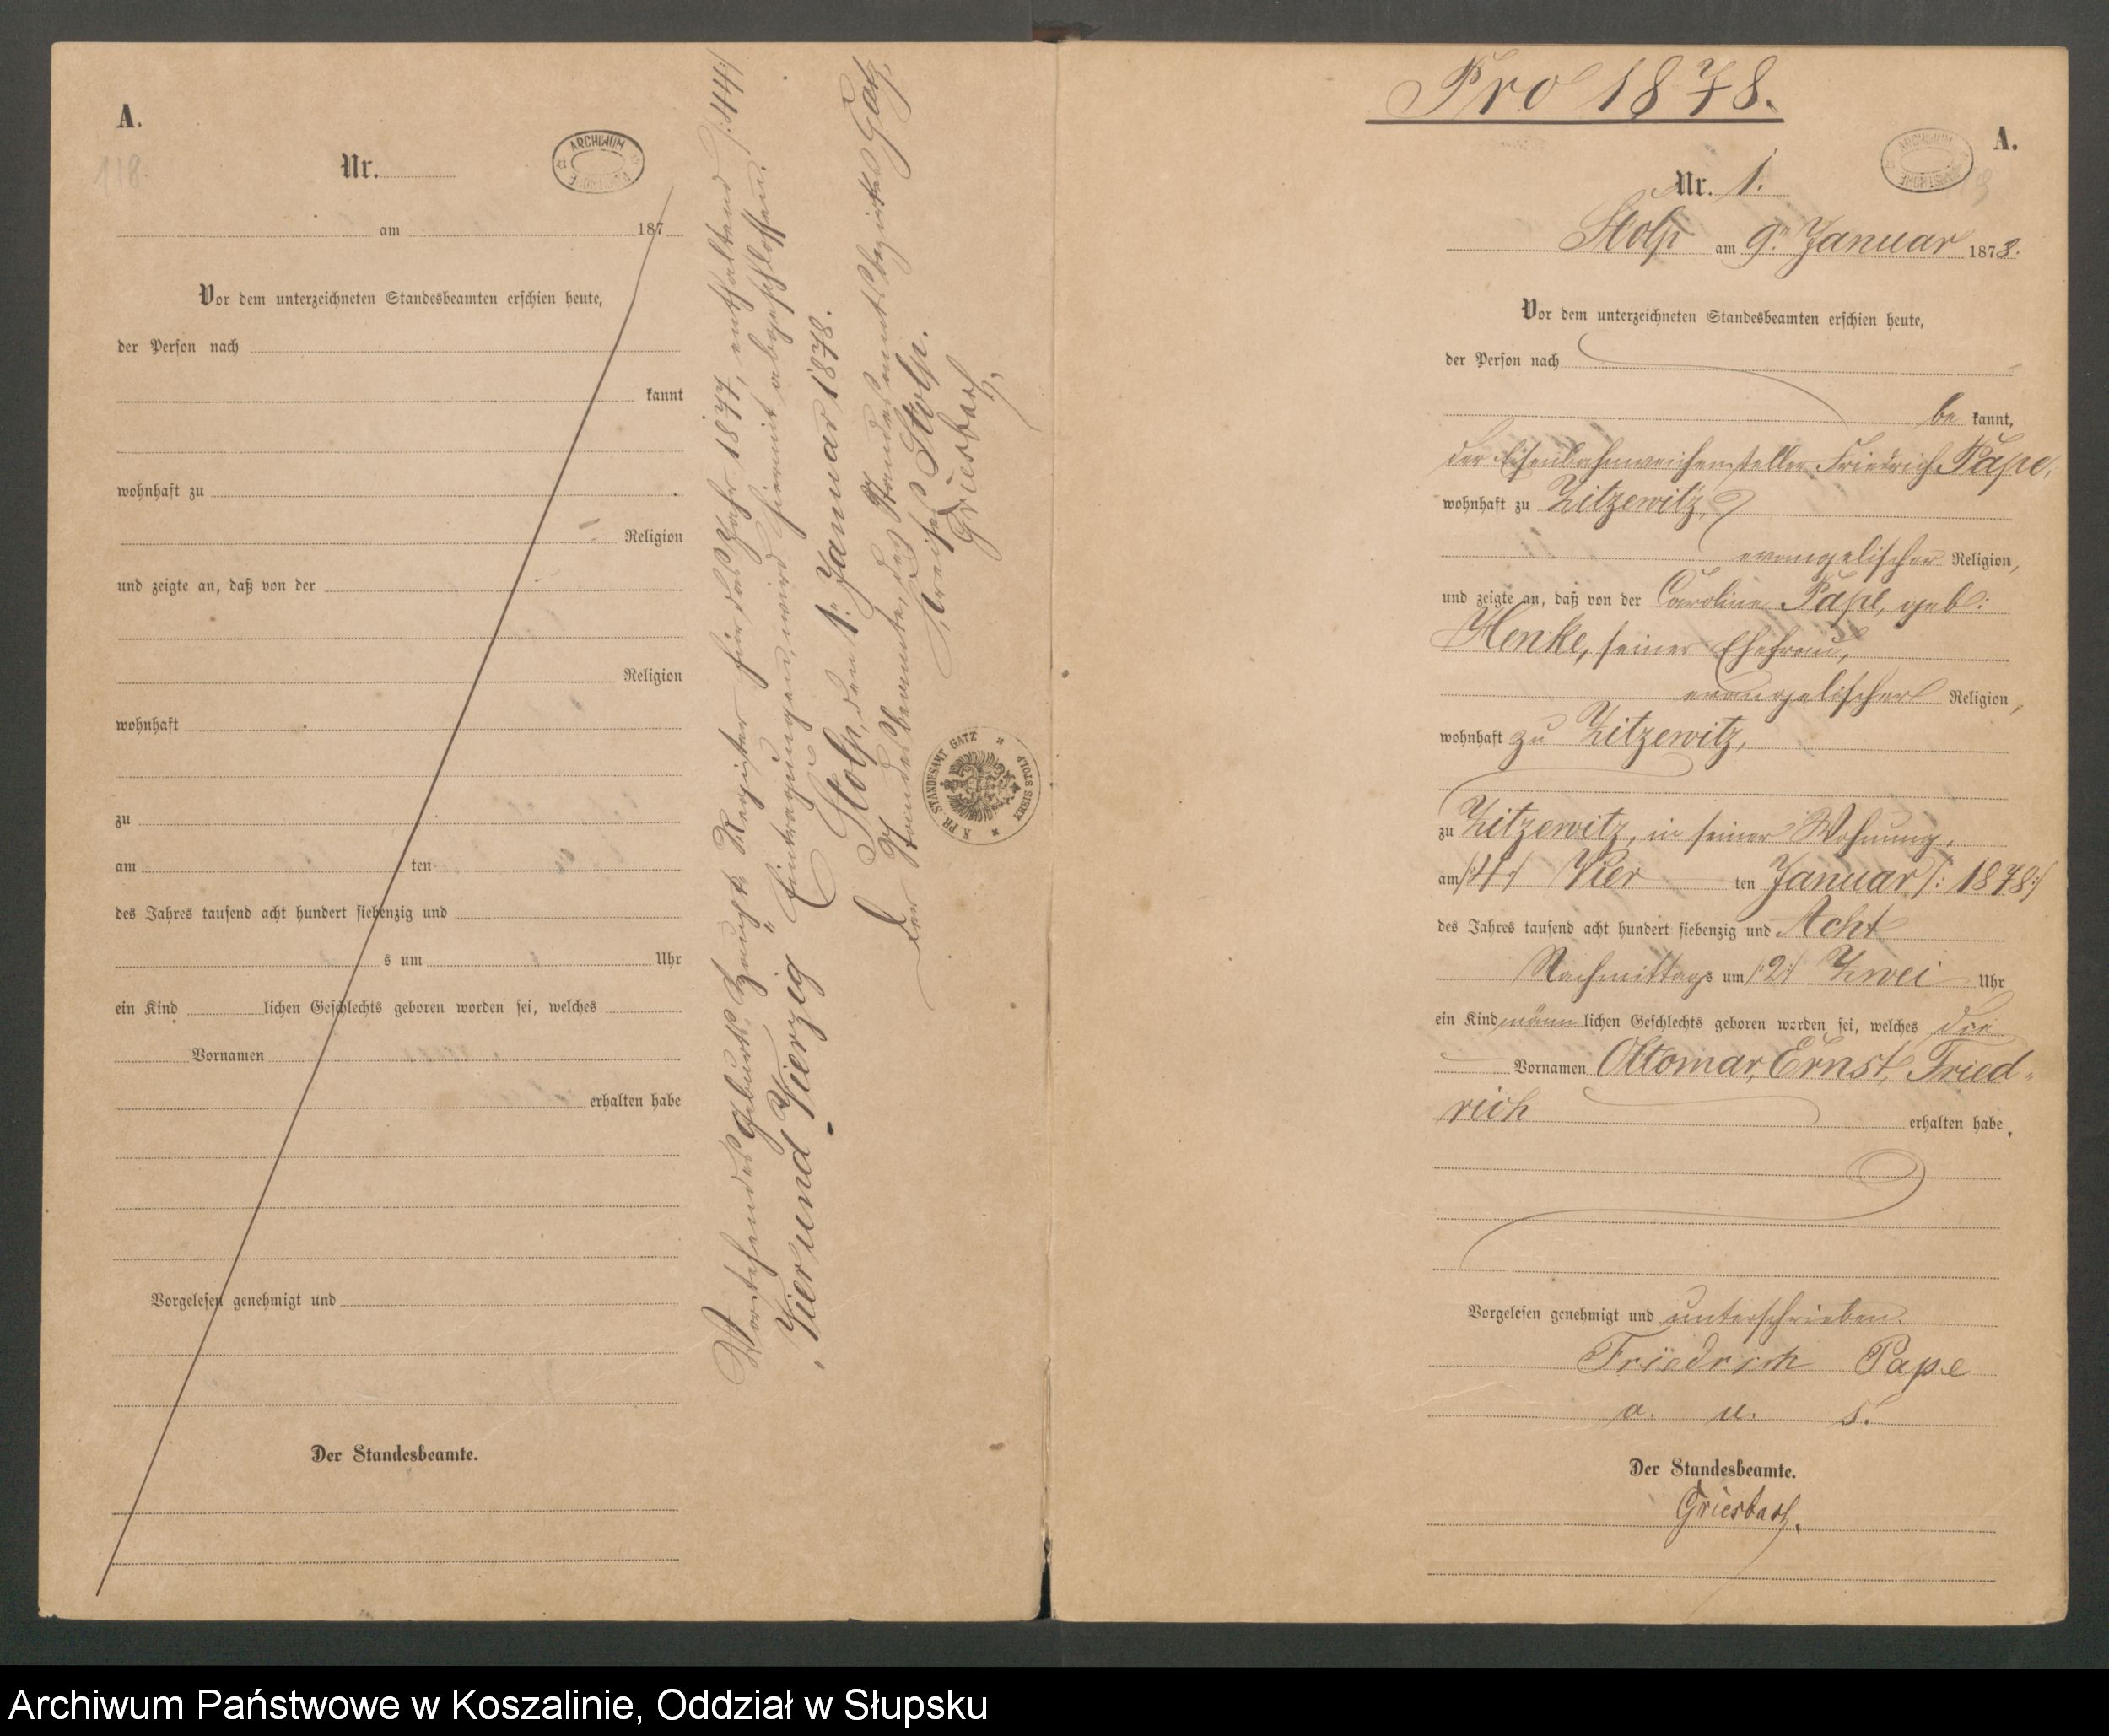 A.
118.
Nr.
ARCHIWUM
am 187
Vor dem unterzeichneten Standesbeamten erschien heute,
der Person nach
kannt
wohnhaft zu
Religion
und zeigte an, daß von der
Religion
wohnhaft
zu
am ten
des Jahres tausend acht hundert siebenzig und
s um Uhr
ein Kind lichen Geschlechts geboren worden sei, welches
Vornamen
erhalten habe
Vorgelesen genehmigt und
Der Standesbeamte.
Vorstehendes Geburts-Haupt-Register für das Jahr 1877, enthaltend /:44:/
"Vierund Vierzig" Eintragungen, wird hiermit abgeschlossen.
Stolp, den 1. Januar 1878.
Der Standesbeamte des Standesamtsbezirkes Gatz,
Kreises Stolp.
Griesbach,
K PR STANDESAMT GATZ
KREIS STOLP
Pro 1878.
A.
Nr. 1.
Stolp am 9. Januar 1878.
Vor dem unterzeichneten Standesbeamten erschien heute,
der Person nach
be kannt,
der Eisenbahnweichensteller Friedrich Pape,
wohnhaft zu Zitzewitz,
evangelischer Religion,
und zeigte an, daß von der Caroline Pape, geb:
Henke, seiner Ehefrau,
evangelischer Religion,
wohnhaft zu Zitzewitz,
zu Zitzewitz, in seiner Wohnung,
am /:4:/ Vier ten Januar /: 1878:/
des Jahres tausend acht hundert siebenzig und Acht
Nachmittags um /:2:/ Zwei Uhr
ein Kind männ lichen Geschlechts geboren worden sei, welches die
Vornamen Ottomar, Ernst, Fried-
rich erhalten habe.
Vorgelesen genehmigt und unterschrieben.
Friedrich Pape
a. u. s.
Der Standesbeamte.
Griesbach.
Archiwum Państwowe w Koszalinie, Oddział w Słupsku